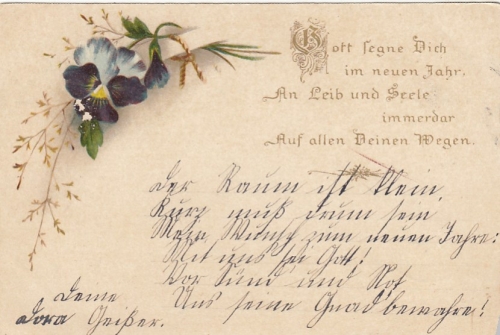 Gott segne Dich
im neuen Jahr,
An Leib und Seele
immerdar
Auf allen Deinen Wegen.
Der Raum ist klein,
Kurz muß drum sein
Mein Wunsch zum neuen Jahre:
Mit uns sei Gott!
Vor Sünd und Not
Uns seine Gnad bewahre!
Deine
Dora Geißer.